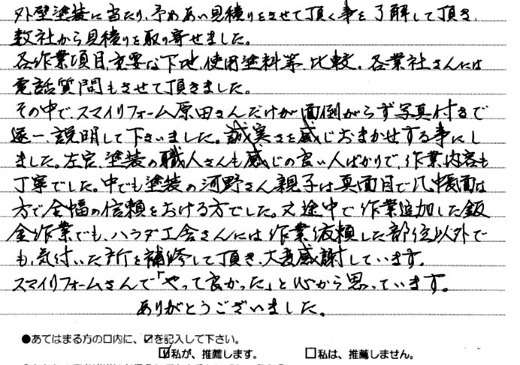 外壁塗装に当たり、予めあい見積りをさせて頂く事を了解して頂き、
数社から見積りを取り寄せました。
各作業項目、重要な下地、使用塗料等、比較。各業社さんには
電話質問もさせて頂きました。
その中で、スマイリフォーム原田さんだけが面倒がらず写真付きで
逐一、説明して下さいました。誠実さを感じおまかせする事にし
ました。左官、塗装の職人さんも感じの良い人ばかりで、作業内容も
丁寧でした。中でも塗装の河野さん親子は真面目で几帳面な
方で全幅の信頼をおける方でした。又途中で作業追加した鈑
金作業でも、ハラダ工舎さんには作業依頼した部位以外で
も、気付いた所を補修して頂き、大変感謝しています。
スマイリフォームさんで「やって良かった」と心から思っています。
ありがとうございました。
●あてはまる方の口内に、☑を記入して下さい。
☑私が、推薦します。 □私は、推薦しません。